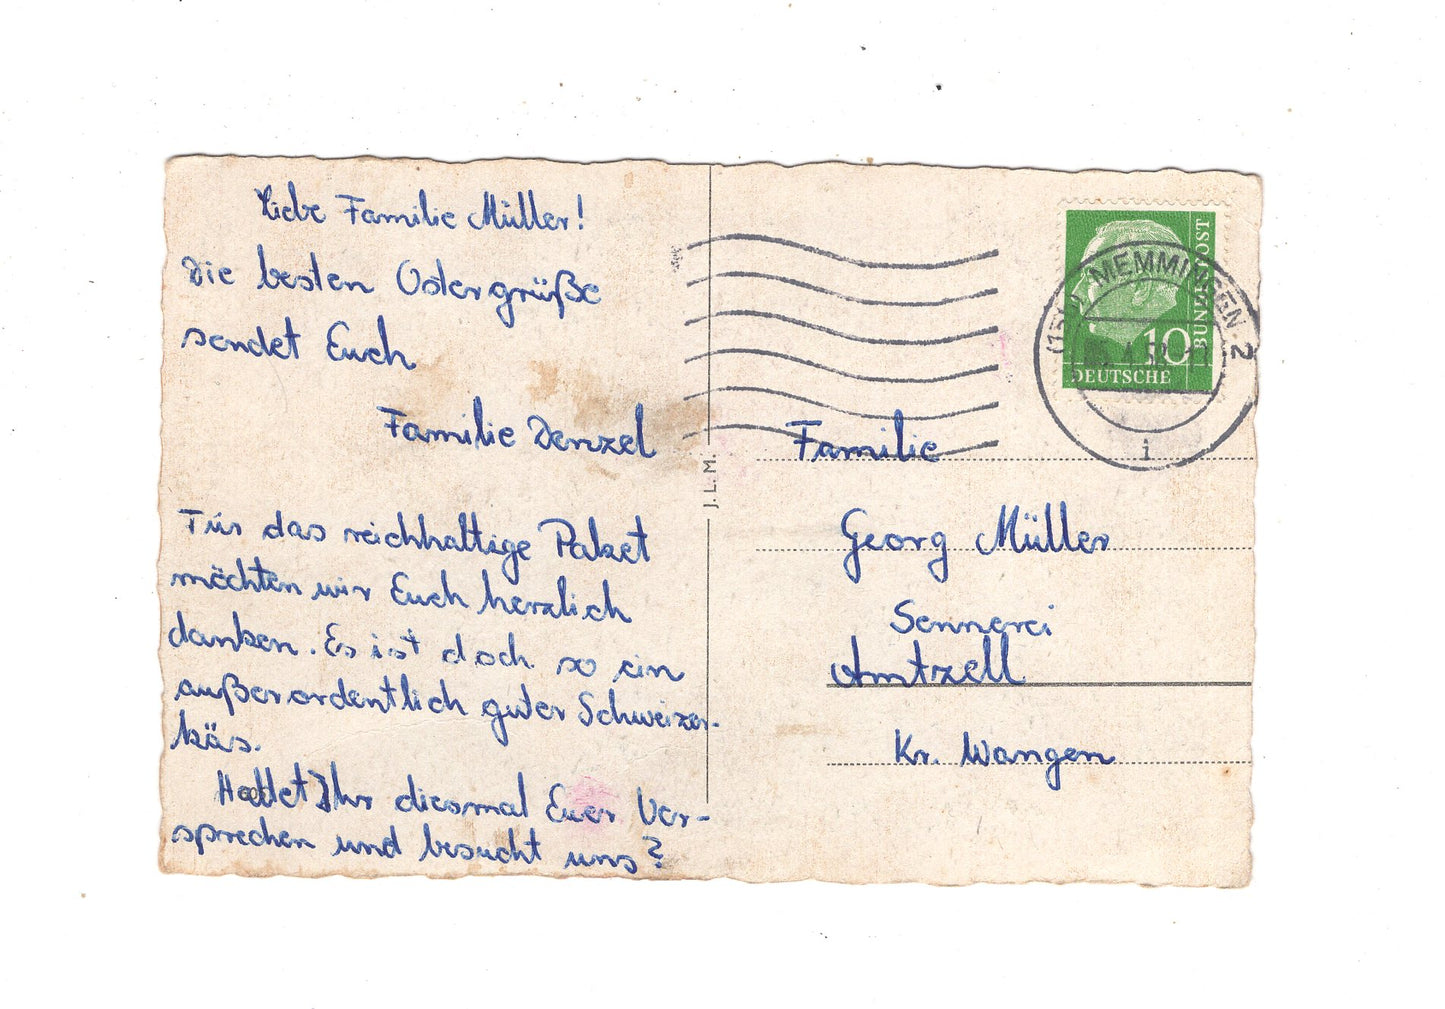 Liebe Familie Müller!
Die besten Ostergrüße
sendet Euch
Familie Denzel
Für das reichhaltige Paket
möchten wir Euch herzlich
danken. Es ist doch so ein
außerordentlich guter Schweizer-
käs.
Haltet Ihr diesmal Euer Ver-
sprechen und besucht uns?
J.L.M.
DEUTSCHE
BUNDESPOST
10
MEMMINGEN 2
i
Familie
Georg Müller
Sennerei
Amtzell
Kr. Wangen